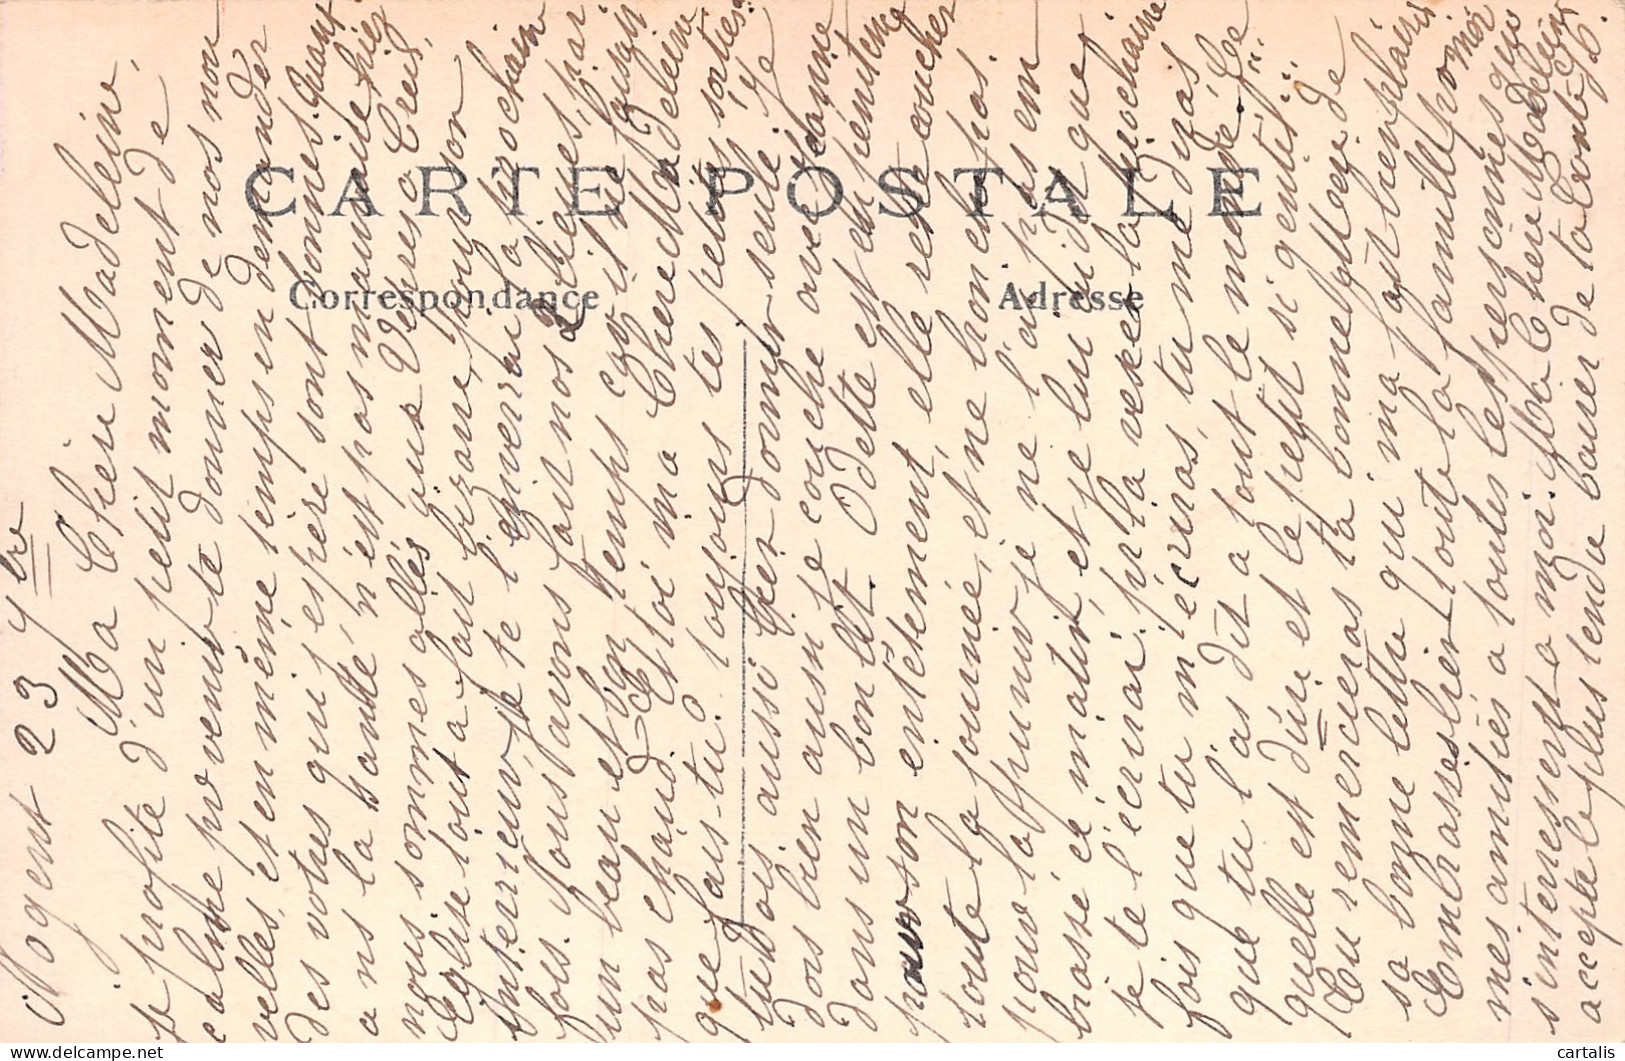 CARTE POSTALE
Correspondance
Adresse
Nogent 23 7bre
Ma Chère Madeleine,
je profite d'un petit moment de
calme pr venir te donner de nos nou
velles, et en même temps en demander
des votres qui j'espère sont bonnes. Quant
a ns la santé, n'est pas mauvaise, hier
nous sommes allés au Vésures a Creil,
Eglise tout a fait bizare, pour son
interrieur, je te l'enverrai la prochaine
fois. Nous avons fait nos 2 lieues, par
un beau et bon temps car il ne faisait
pas chaud. Et toi ma Chère Madeleine
que fais-tu? toujours tes petites sorties.
tu dois aussi bien dormir seule! Je
dois bien aussi je couche avec Jeanne
dans un bon lit. Odette est en penitence
pour son entêtement, elle reste couchée
toute la journée, et ne bronche pas.
pour la punir je ne l'ai pas em
brassé ce matin, et je lui ai dit que
je te l'écrirai. pr la vexer la prochaine
fois que tu m'écriras, tu me diras
que tu l'as dit a tout le monde. Ce
quelle est dure et le petit si gentil.
Tu remercieras ta bonne mère de
sa bonne lettre qui m'a fait bien plaisir
Embrasses bien toute la famille pr moi
mes amitiés a toutes les personnes qui
s'interressent a moi. Ma Chère Madeleine
accepte le plus tendre baiser de ta